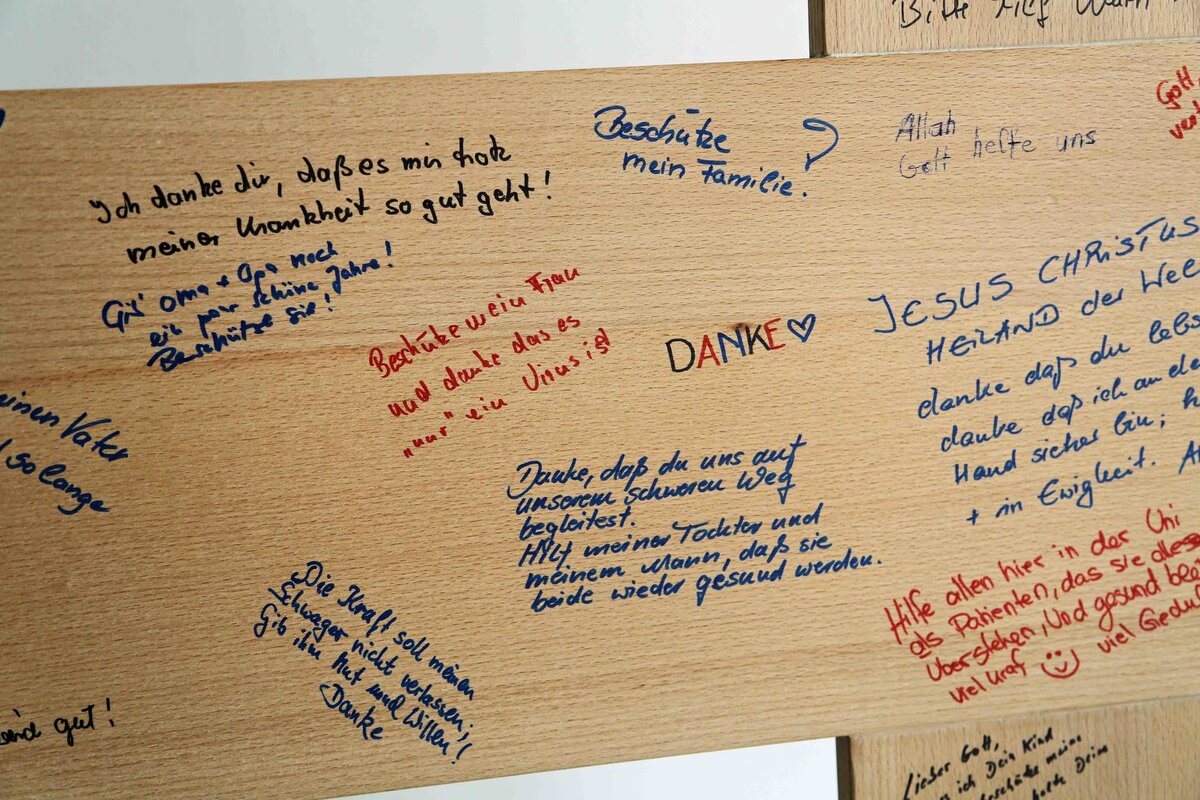 Bitte
Gott,
Allah
Gott helfe uns
Beschütze
mein Familie.
Ich danke dir, daß es mir trotz
meiner Krankheit so gut geht!
Gib Oma + Opa noch
ein paar schöne Jahre!
Beschütze sie!
Beschütze mein Frau
und danke das es
„nur" ein Virus ist
DANKE
JESUS CHRISTUS
HEILAND der
danke daß du lebst
danke daß ich an
Hand sicher bin;
+ in Ewigkeit.
Vater
so lange
Danke, daß du uns auf
unserem schweren Weg
begleitest.
Hilf meiner Tochter und
meinem Mann, daß sie
beide wieder gesund werden.
Hilfe allen hier in der Uni
als Patienten, das sie alles
überstehen, und gesund
viel kraf viel
Die Kraft soll meinen
Schwager nicht verlassen;
Gib ihm Mut und Willen!
Danke
gut!
Lieber Gott,
ich Dein Kind
meine
Deine